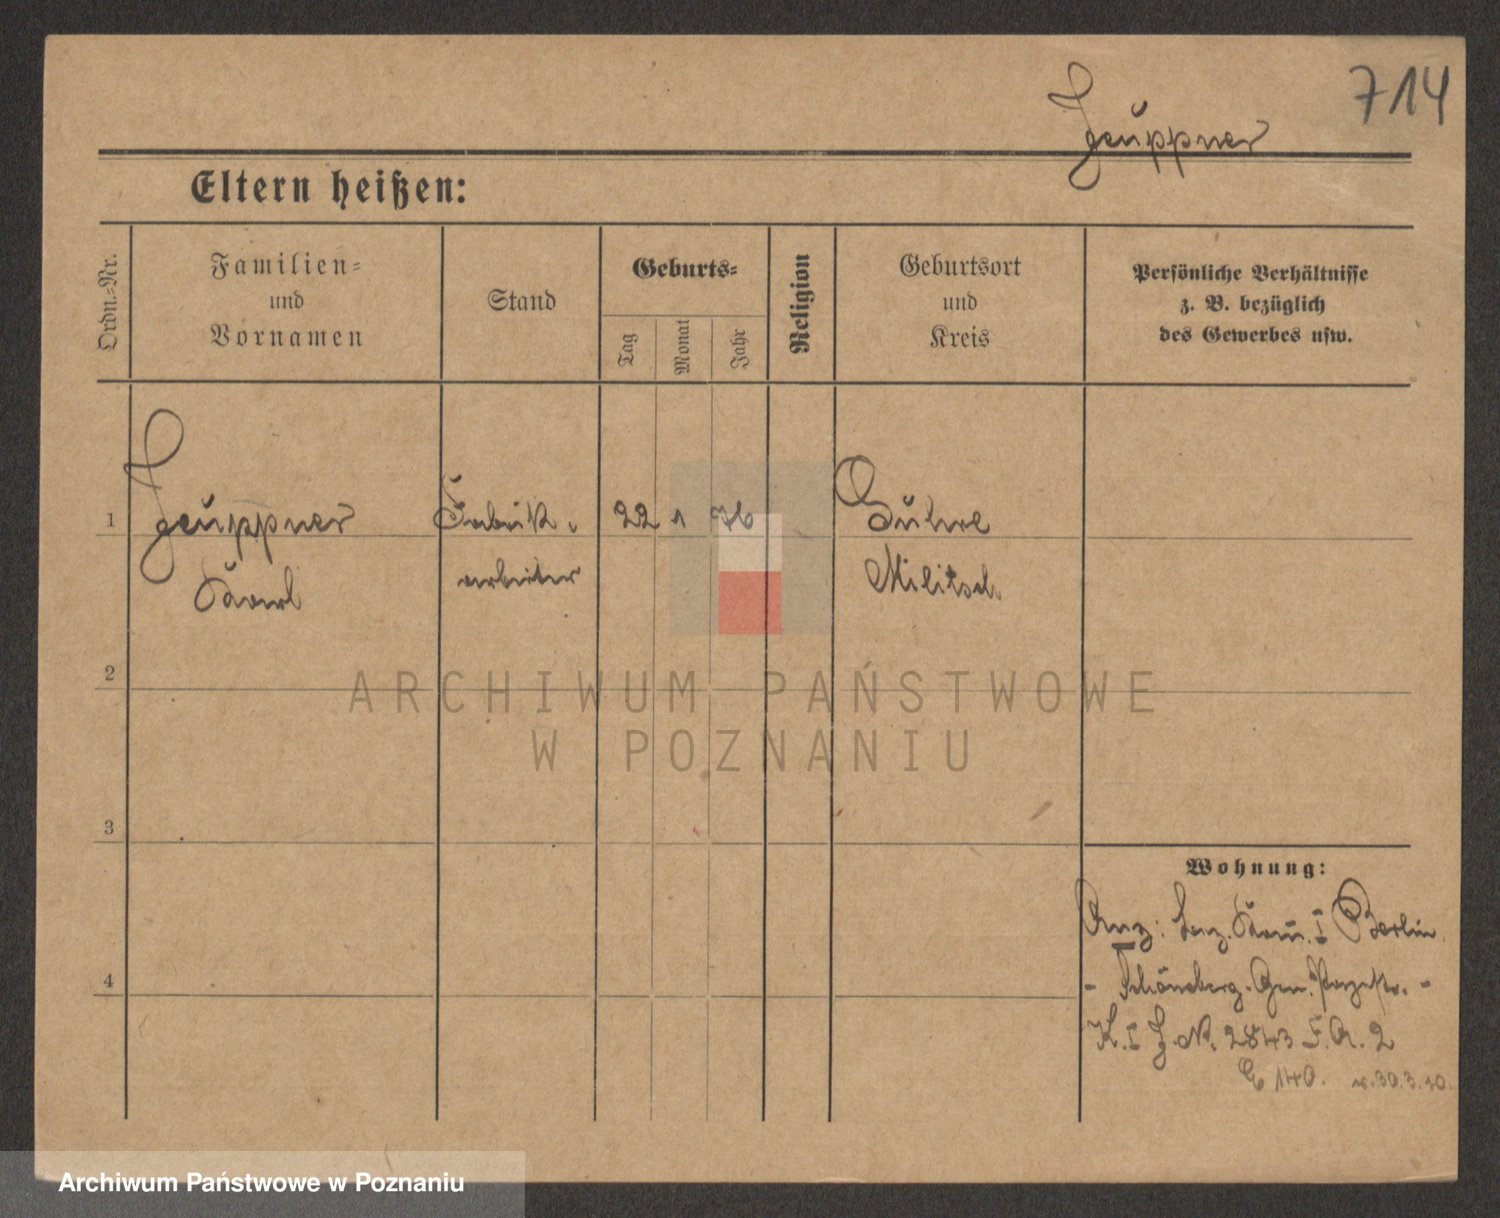 714
Jeuppner
Eltern heißen:
Ordn.-Nr.
Familien-
und
Vornamen
Stand
Geburts-
Tag
Monat
Jahr
Religion
Geburtsort
und
Kreis
Persönliche Verhältnisse
z. B. bezüglich
des Gewerbes usw.
1
Jeuppner
Karl
Fabrik-
arbeiter
22 1 76
Militsch
2
3
4
ARCHIWUM PAŃSTWOWE
W POZNANIU
Wohnung:
Anz: I Berlin
- Schöneberg. Gen. -
K. I J. N. 2843 F. A. 2
E 140. v. 30.3.10.
Archiwum Państwowe w Poznaniu